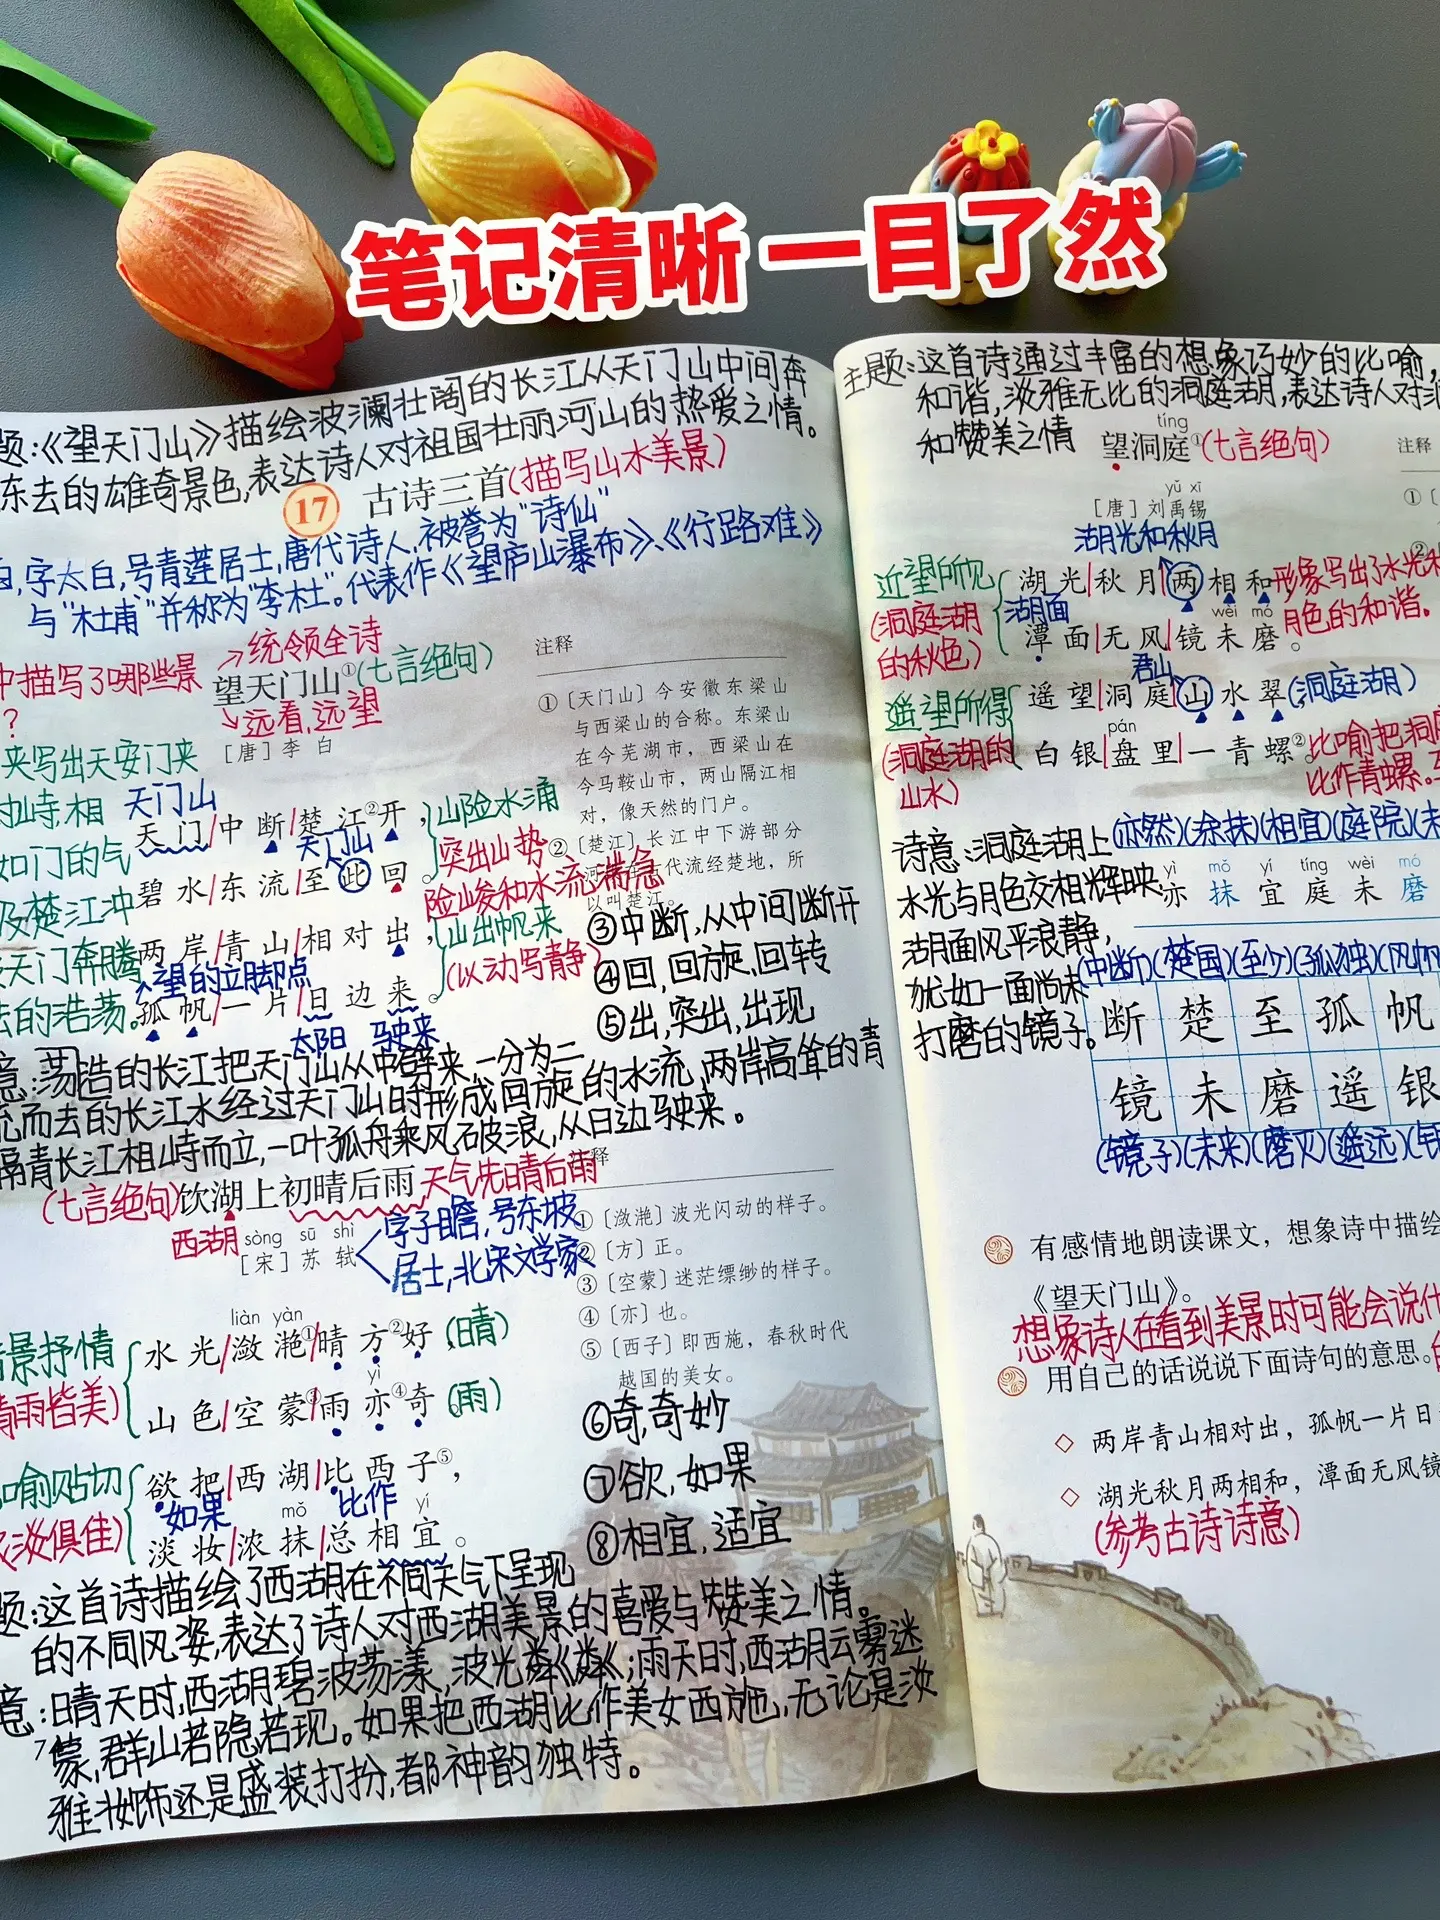 笔记清晰 一目了然
题:《望天门山》描绘波澜壮阔的长江从天门山中间奔
东去的雄奇景色,表达诗人对祖国壮丽河山的热爱之情。
17 古诗三首(描写山水美景)
白,字太白,号青莲居士,唐代诗人,被誉为“诗仙”
与“杜甫”并称为“李杜”。代表作《望庐山瀑布》、《行路难》
统领全诗
中描写了哪些景
?
望天门山①(七言绝句)
远看,远望
[唐]李 白
来写出天安门夹
对峙相
如门的气
及楚江冲
天门奔腾
去的浩荡。
天门山
天门/中断/楚江②开,
天门山
碧水/东流/至此回。
两岸/青山/相对出,
望的立脚点
孤帆/一片/日边来。
太阳 驶来
山险水涌
突出山势
险峻和水流湍急
山出帆来
(以动写静)
注释
①〔天门山〕今安徽东梁山
与西梁山的合称。东梁山
在今芜湖市,西梁山在
今马鞍山市,两山隔江相
对,像天然的门户。
②〔楚江〕长江中下游部分
河 古代流经楚地,所
以叫楚江。
③中断,从中间断开
④回,回旋,回转
⑤出,突出,出现
意:荡浩的长江把天门山从中劈来一分为二
流而去的长江水经过天门山时形成回旋的水流,两岸高耸的青
隔青长江相峙而立,一叶孤舟乘风破浪,从日边驶来。
(七言绝句)饮湖上初晴后雨 天气先晴后雨
西湖
sòng sū shì
[宋]苏 轼
字子瞻,号东坡
居士,北宋文学家
景抒情
晴雨皆美)
liàn yàn
水光/潋滟①/晴方②好,(晴)
yì
山色/空蒙③/雨亦④奇。(雨)
喻贴切
淡俱佳)
欲把/西湖/比西子⑤,
如果 比作
mǒ yí
淡妆/浓抹/总相宜。
注释
①〔潋滟〕波光闪动的样子。
②〔方〕正。
③〔空蒙〕迷茫缥缈的样子。
④〔亦〕也。
⑤〔西子〕即西施,春秋时代
越国的美女。
⑥奇,奇妙
⑦欲,如果
⑧相宜,适宜
题:这首诗描绘了西湖在不同天气下呈现
的不同风姿,表达了诗人对西湖美景的喜爱与赞美之情。
意:晴天时,西湖碧波荡漾,波光粼粼;雨天时,西湖云雾迷
蒙,群山若隐若现。如果把西湖比作美女西施,无论是淡
雅妆饰还是盛装打扮,都神韵独特。
7
主题:这首诗通过丰富的想象巧妙的比喻,
和谐,淡雅无比的洞庭湖,表达诗人对洞
和赞美之情
tíng
望洞庭①(七言绝句)
yǔ xī
[唐]刘禹锡
湖光和秋月
近望所见
(洞庭湖
的秋色)
湖光/秋月/两相和,
湖面
wèi mó
潭面/无风/镜未磨。
形象写出了水光和
月色的和谐。
君山
遥望所得
(洞庭湖的
山水)
遥望/洞庭/山水翠,(洞庭湖)
pán
白银/盘里/一青螺②。
比喻把洞庭
比作青螺。
注释
①〔
②
诗意:洞庭湖上
水光与月色交相辉映,
湖面风平浪静,
犹如一面尚未
打磨的镜子。
(亦然)(涂抹)(相宜)(庭院)(未
yì mǒ yí tíng wèi mó
亦 抹 宜 庭 未 磨
(中断)(楚国)(至少)(孤独)(风帆
断 楚 至 孤 帆
镜 未 磨 遥 银
(镜子)(未来)(磨灭)(遥远)(银
有感情地朗读课文,想象诗中描绘
《望天门山》。
想象诗人在看到美景时可能会说什
用自己的话说说下面诗句的意思。
◇ 两岸青山相对出,孤帆一片日
◇ 湖光秋月两相和,潭面无风镜
(参考古诗诗意)